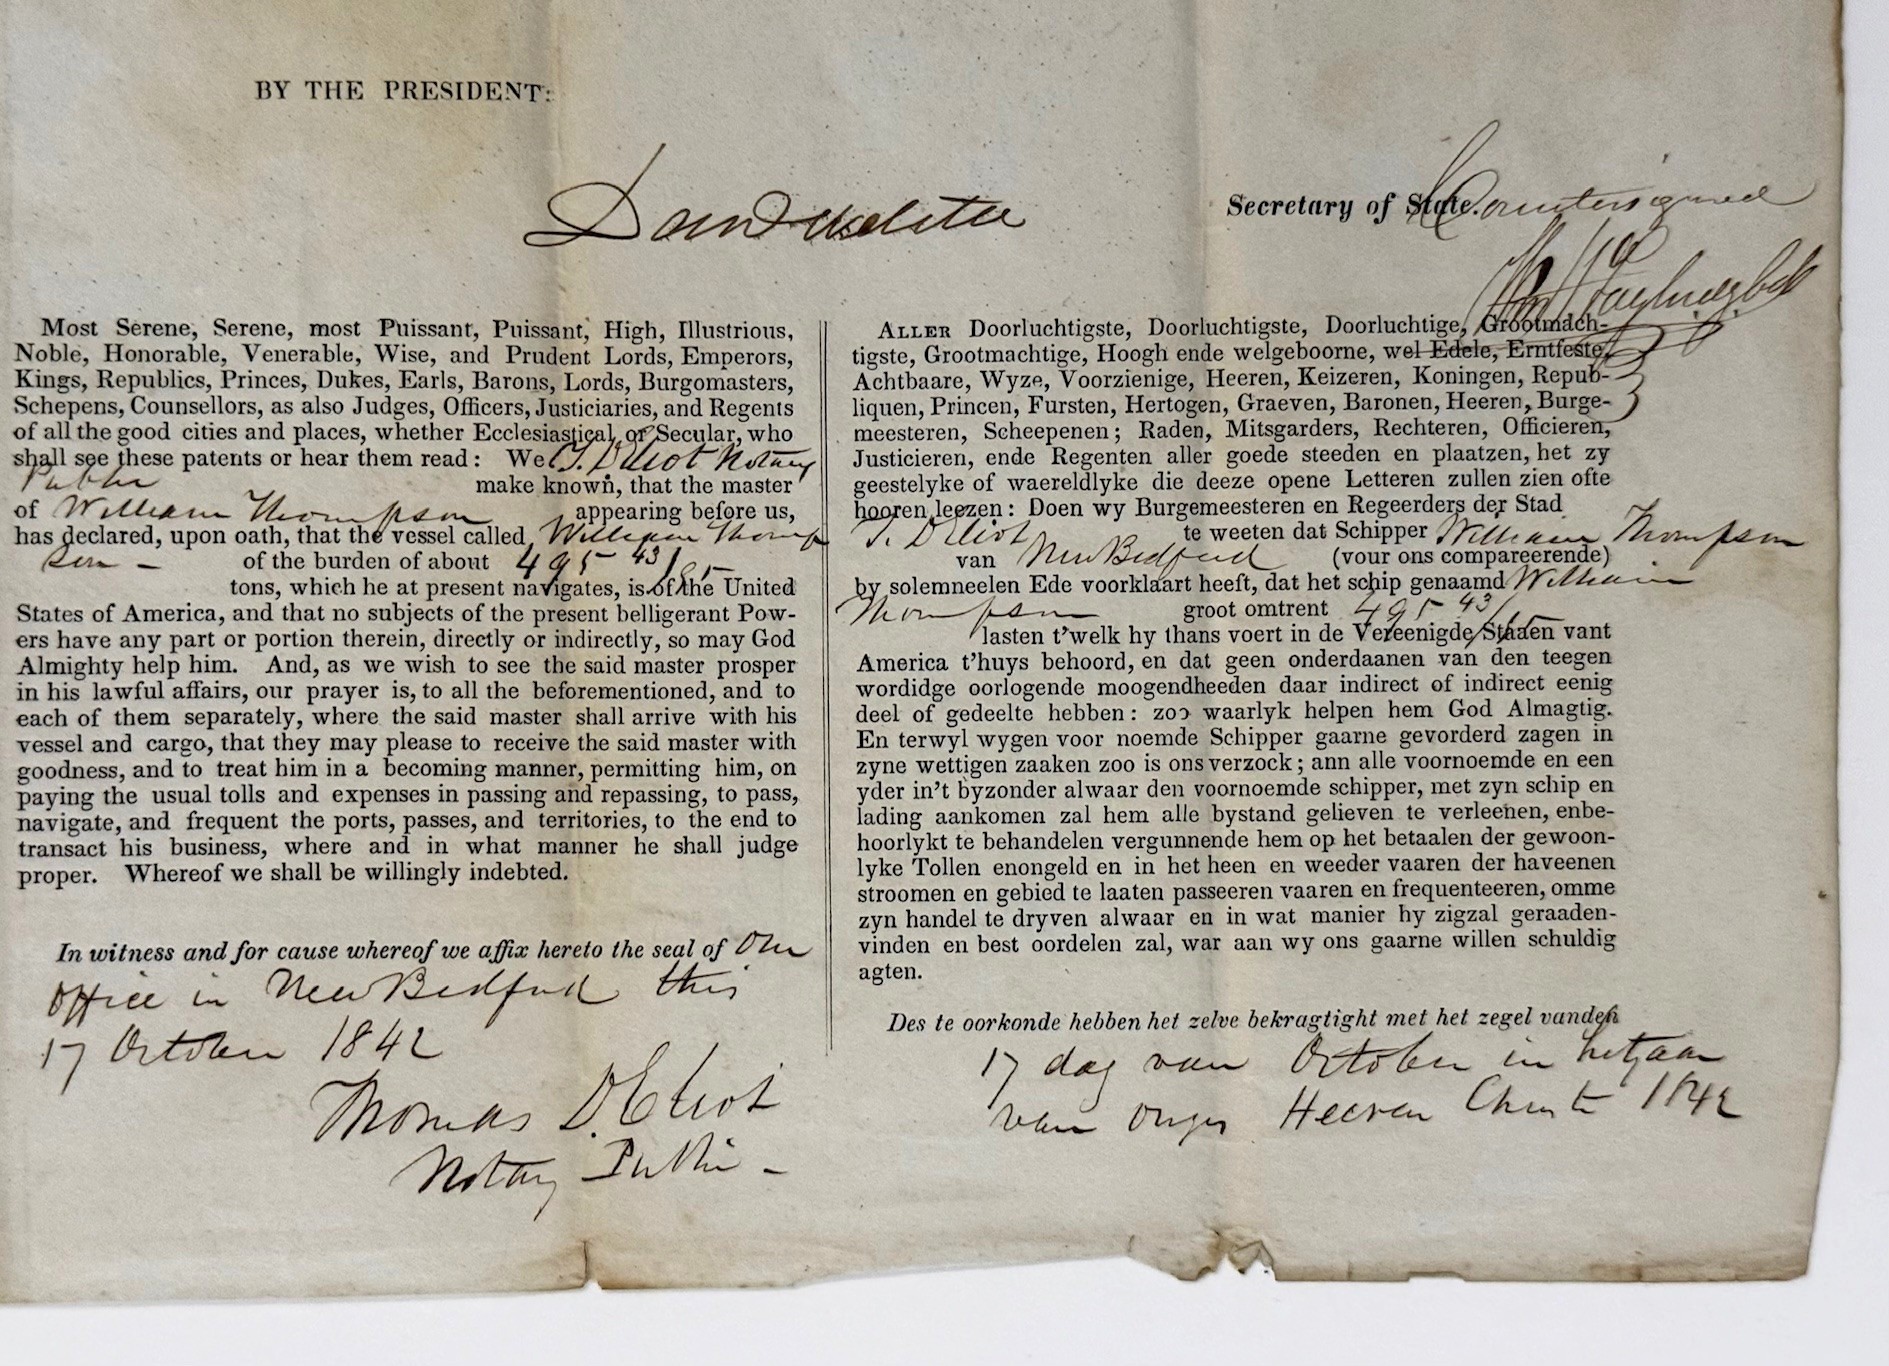 BY THE PRESIDENT:
Secretary of State.
Countersigned
Most Serene, Serene, most Puissant, Puissant, High, Illustrious,
Noble, Honorable, Venerable, Wise, and Prudent Lords, Emperors,
Kings, Republics, Princes, Dukes, Earls, Barons, Lords, Burgomasters,
Schepens, Counsellors, as also Judges, Officers, Justiciaries, and Regents
of all the good cities and places, whether Ecclesiastical or Secular, who
shall see these patents or hear them read: We T. D. Eliot Notary
Public make known, that the master
of William Thompson appearing before us,
has declared, upon oath, that the vessel called William Thomp
son - of the burden of about 495 43/95
tons, which he at present navigates, is of the United
States of America, and that no subjects of the present belligerent Pow-
ers have any part or portion therein, directly or indirectly, so may God
Almighty help him. And, as we wish to see the said master prosper
in his lawful affairs, our prayer is, to all the beforementioned, and to
each of them separately, where the said master shall arrive with his
vessel and cargo, that they may please to receive the said master with
goodness, and to treat him in a becoming manner, permitting him, on
paying the usual tolls and expenses in passing and repassing, to pass,
navigate, and frequent the ports, passes, and territories, to the end to
transact his business, where and in what manner he shall judge
proper. Whereof we shall be willingly indebted.
In witness and for cause whereof we affix hereto the seal of our
office in New Bedford this
17 October 1842
Thomas D. Eliot
Notary Public -
ALLER Doorluchtigste, Doorluchtigste, Doorluchtige, Grootmach-
tigste, Grootmachtige, Hoogh ende welgeboorne, wel Edele, Erntfeste,
Achtbaare, Wyze, Voorzienige, Heeren, Keizeren, Koningen, Repub-
liquen, Princen, Fursten, Hertogen, Graeven, Baronen, Heeren, Burge-
meesteren, Scheepenen; Raden, Mitsgarders, Rechteren, Officieren,
Justicieren, ende Regenten aller goede steeden en plaatzen, het zy
geestelyke of waereldlyke die deeze opene Letteren zullen zien ofte
hooren leezen: Doen wy Burgemeesteren en Regeerders der Stad
T. D Eliot te weeten dat Schipper William Thompson
van New Bedford (vour ons compareerende)
by solemneelen Ede voorklaart heeft, dat het schip genaamd William
Thompson groot omtrent 495 43/95
lasten t'welk hy thans voert in de Vereenigde Staaten vant
America t'huys behoord, en dat geen onderdaanen van den teegen
wordidge oorlogende moogendheeden daar indirect of indirect eenig
deel of gedeelte hebben: zoo waarlyk helpen hem God Almagtig.
En terwyl wygen voor noemde Schipper gaarne gevorderd zagen in
zyne wettigen zaaken zoo is ons verzock; ann alle voornoemde en een
yder in't byzonder alwaar den voornoemde schipper, met zyn schip en
lading aankomen zal hem alle bystand gelieven te verleenen, enbe-
hoorlykt te behandelen vergunnende hem op het betaalen der gewoon-
lyke Tollen enongeld en in het heen en weeder vaaren der haveenen
stroomen en gebied te laaten passeeren vaaren en frequenteeren, omme
zyn handel te dryven alwaar en in wat manier hy zigzal geraaden-
vinden en best oordelen zal, war aan wy ons gaarne willen schuldig
agten.
Des te oorkonde hebben het zelve bekragtight met het zegel vanden
17 dag van October in het jaar
van onzen Heeren Christi 1842